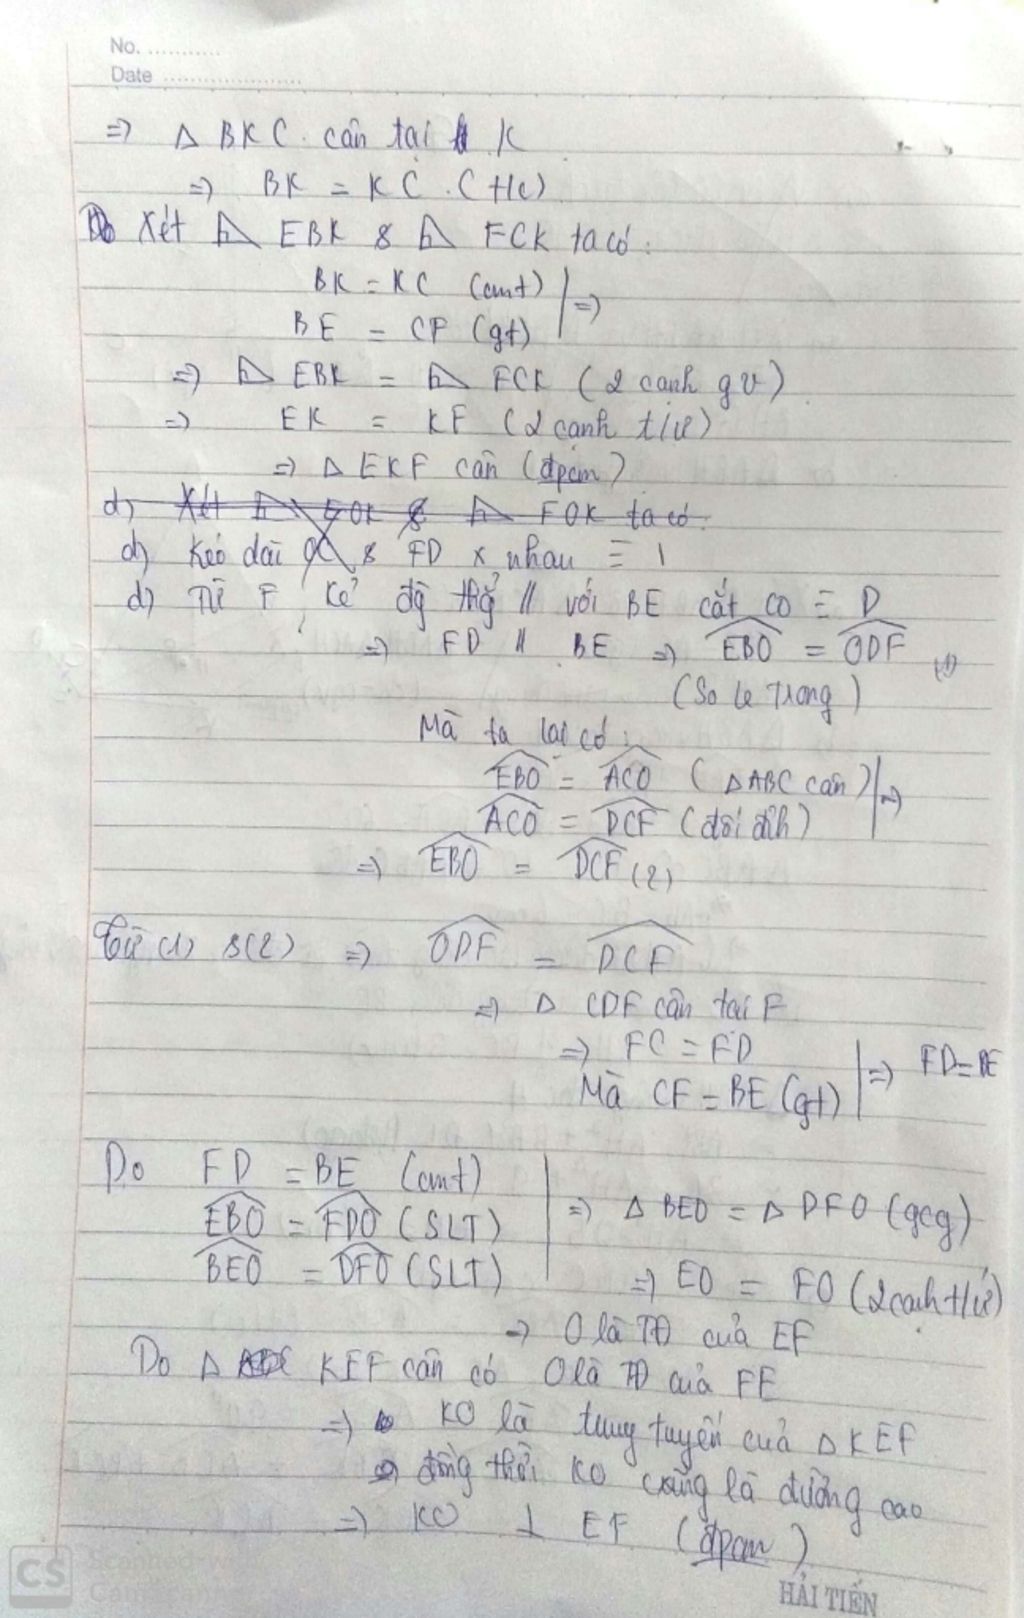 No. ............
Date ........................
=> Δ BKC. cân tại K
=> BK = KC. (t/c)
Xét ⊿ EBK & ⊿ FCK ta có:
BK = KC (cmt) | =>
BE = CF (gt)
=> ⊿ EBK = ⊿ FCK (2 cạnh gv)
=> EK = KF (2 cạnh t/ứ)
=> Δ EKF cân (đpcm)
d) Xét ⊿ EOK & ⊿ FOK ta có:
d) Kéo dài & FD x nhau ≡ I
d) Từ F kẻ đg thg̉ // với BE cắt CO ≡ D
=> FD // BE => EBO = ODF (1)
(So le trong)
Mà ta lại có:
EBO = ACO (Δ ABC cân) | =>
ACO = DCF (đối đỉnh)
=> EBO = DCF (2)
Từ (1) & (2) => ODF = DCF
=> Δ CDF cân tại F
=> FC = FD | => FD = BE
Mà CF = BE (gt)
Do FD = BE (cmt)
EBO = FDO (SLT) | => Δ BEO = Δ DFO (gcg)
BEO = DFO (SLT) => EO = FO (2 cạnh t/ứ)
=> O là TĐ của EF
Do Δ KEF cân có O là TĐ của FE
=> KO là trung tuyến của Δ KEF
=> đồng thời KO cũng là đường cao
=> KO ⊥ EF (đpcm)
CS Scanned with
CamScanner
HẢI TIẾN